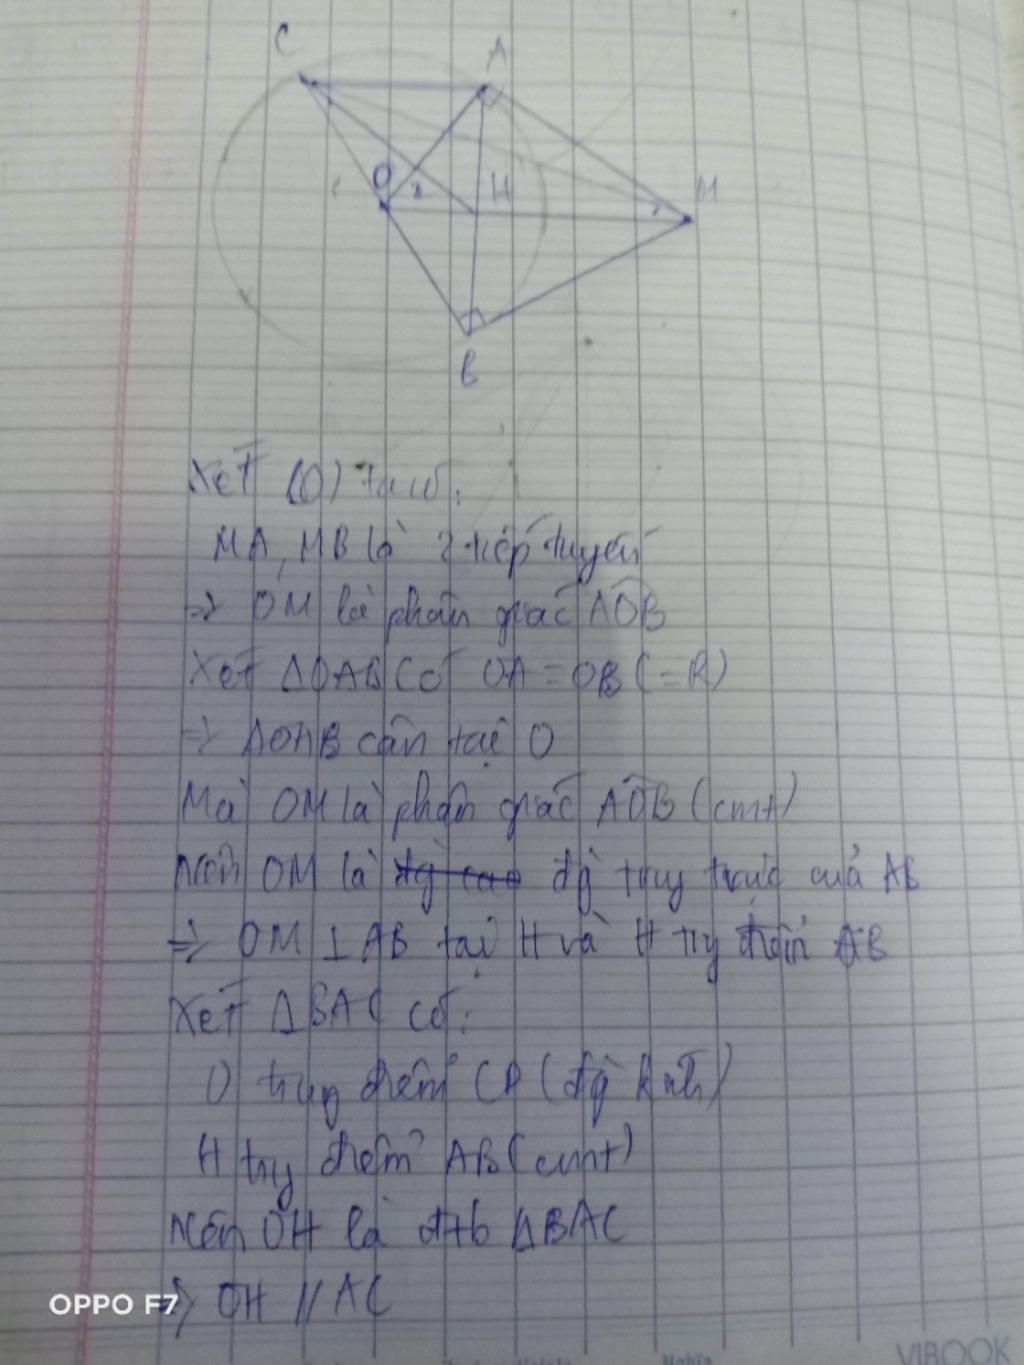 C
A
O
2
H
M
B
Xét (O) ta có:
MA, MB là 2 tiếp tuyến
=> OM là phân giác AÔB
Xét ΔOAB có OA = OB (=R)
=> ΔOAB cân tại O
Mà OM là phân giác AÔB (cmt)
Nên OM là đg cao đg trug trực của AB
=> OM ⊥ AB tại H và H trg điểm AB
Xét ΔBAC có:
O trug điểm CB (đg kính)
H trg điểm AB (cmt)
Nên OH là đtb ΔBAC
=> OH // AC
OPPO F7
VIBOOK